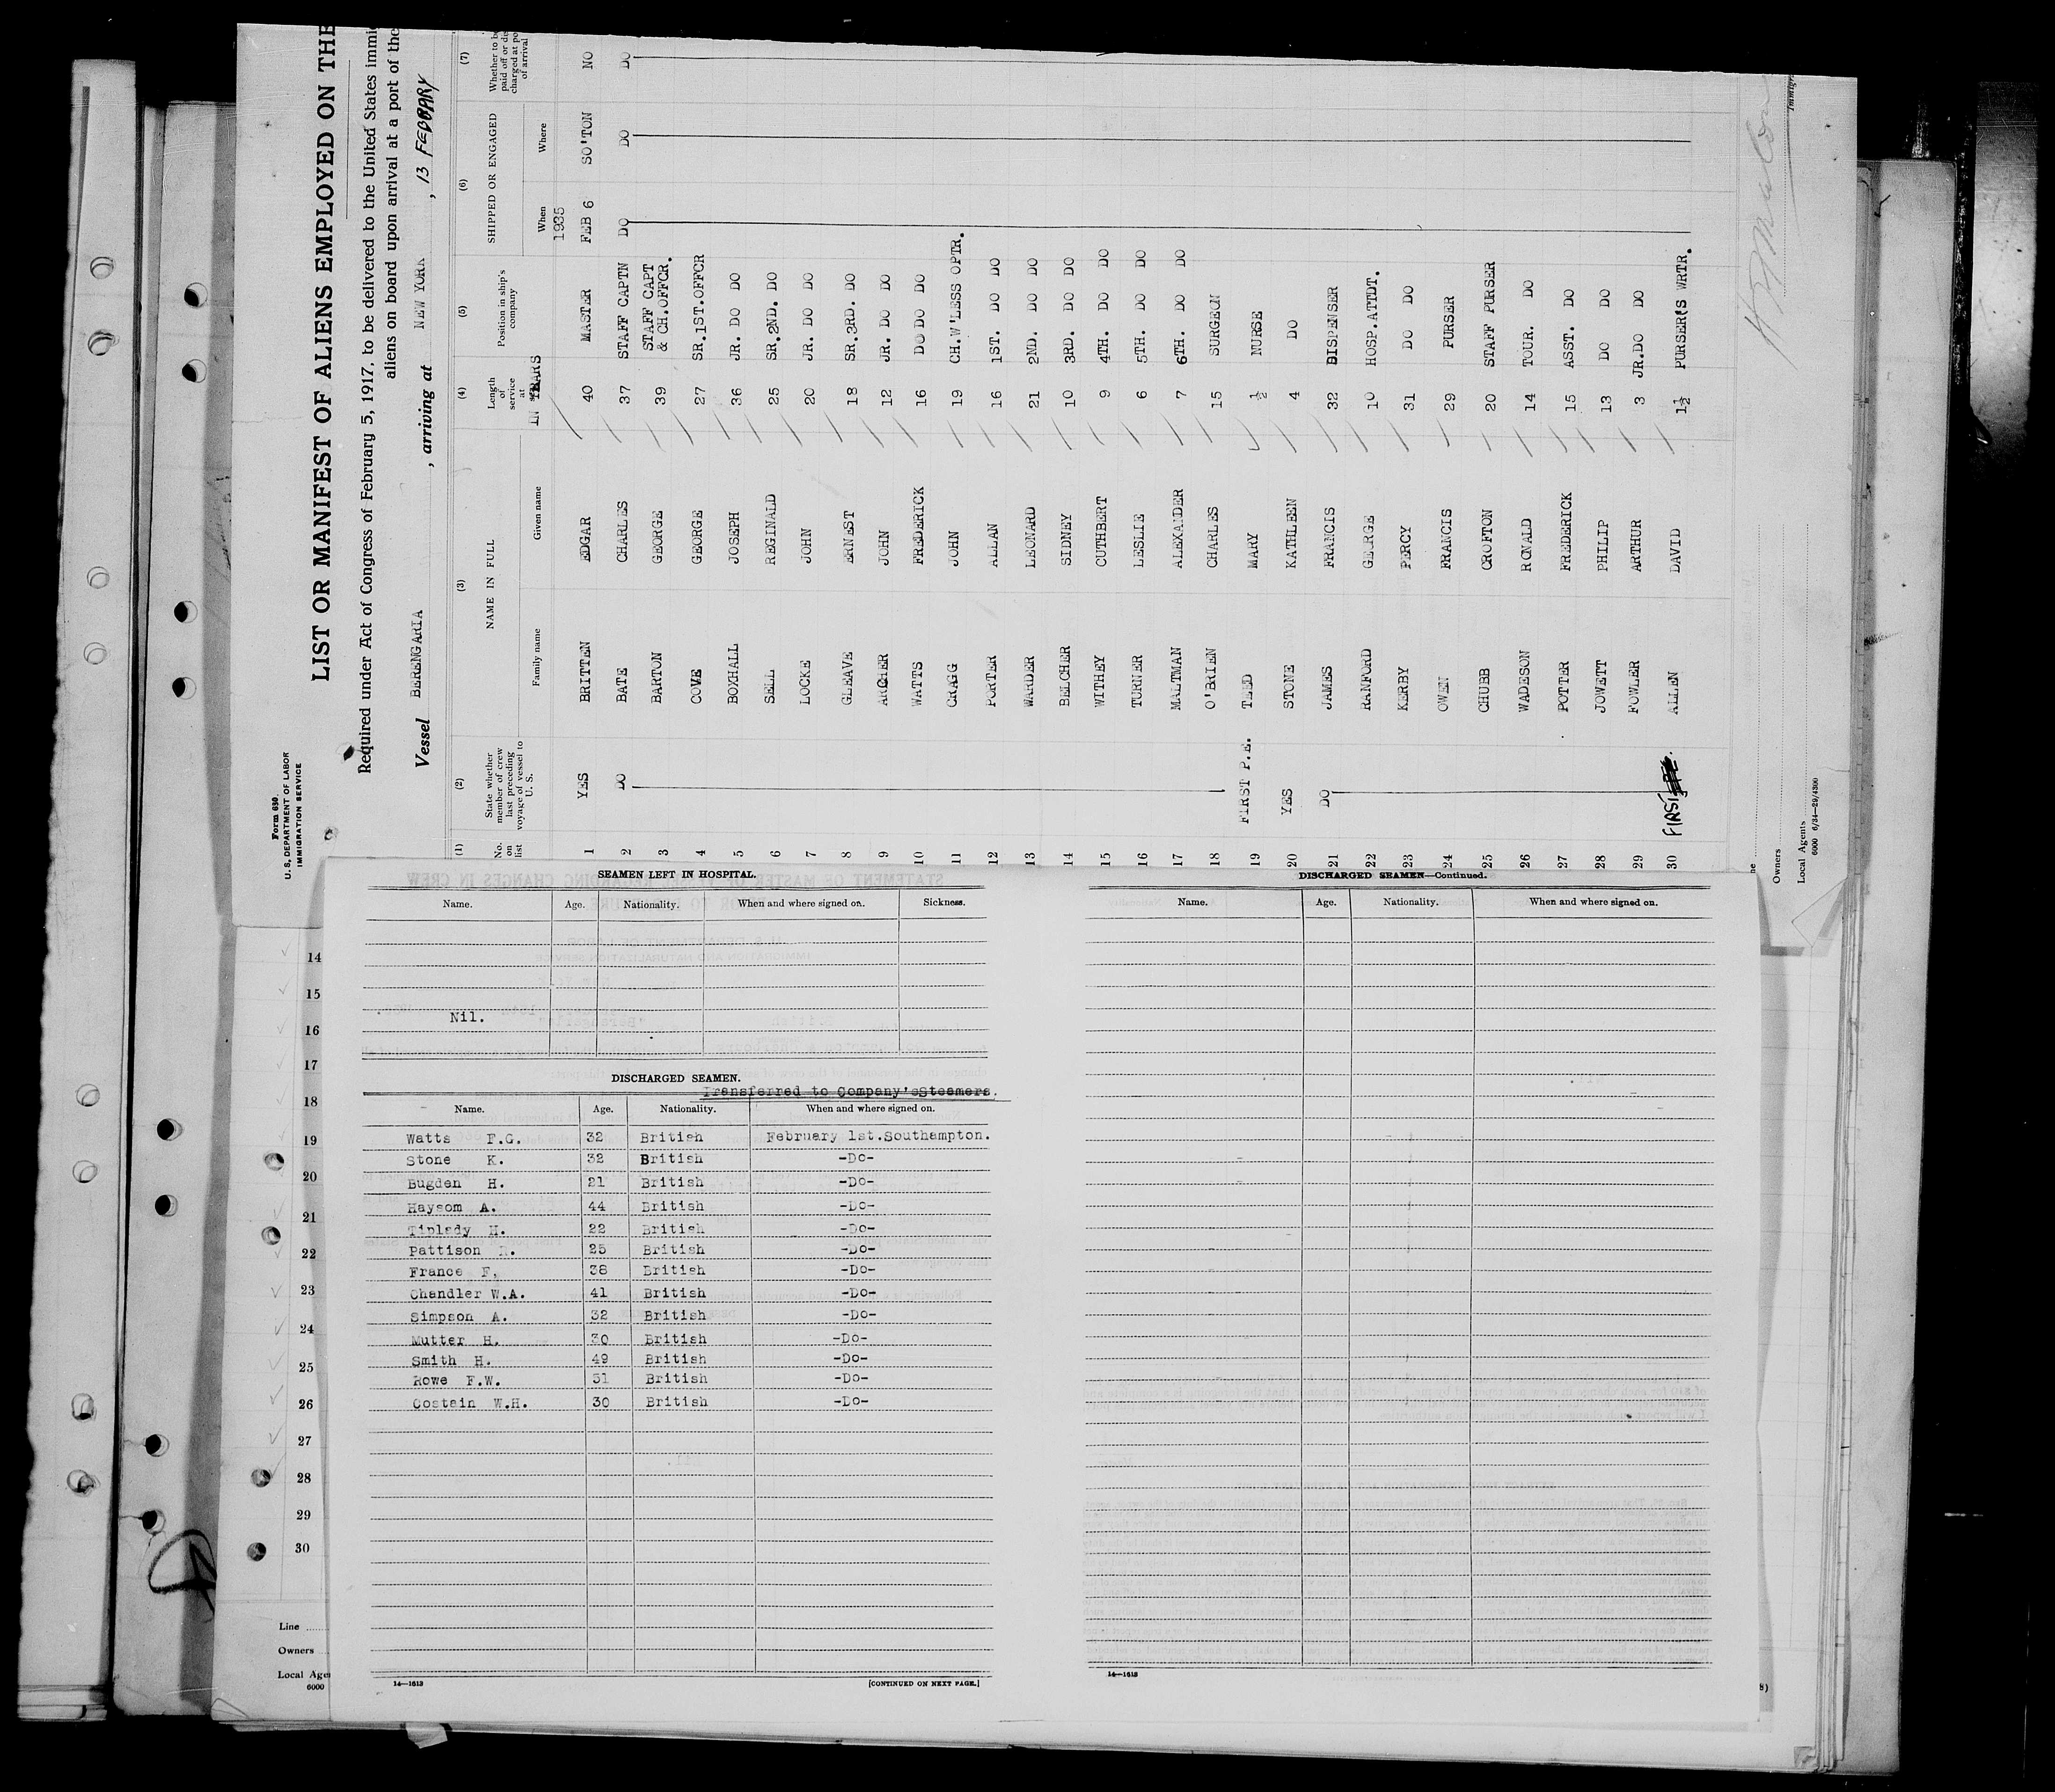 Form 630
U. S. DEPARTMENT OF LABOR
IMMIGRATION SERVICE
LIST OR MANIFEST OF ALIENS EMPLOYED ON THE
Required under Act of Congress of February 5, 1917, to be delivered to the United States immi
aliens on board upon arrival at a port of the
Vessel BERENGARIA , arriving at NEW YORK , 13 FEBRARY
(1) (2) (3) (4) (5) (6) (7)
No. on list State whether member of crew last preceding voyage of vessel to U. S. NAME IN FULL Length of service at Position in ship's company SHIPPED OR ENGAGED Whether to be paid off or dis charged at po of arrival
Family name Given name IN YEARS When Where
1935
1 YES BRITTEN EDGAR 40 MASTER FEB 6 SO'TON NO
2 DO BATE CHARLES 37 STAFF CAPTN DO DO DO
3 BARTON GEORGE 39 STAFF CAPT & CH.OFFCR.
4 COVE GEORGE 27 SR.1ST.OFFCR
5 BOXHALL JOSEPH 36 JR. DO DO
6 SELL REGINALD 25 SR.2ND. DO
7 LOCKE JOHN 20 JR. DO DO
8 GLEAVE ERNEST 18 SR.3RD. DO
9 ARCHER JOHN 12 JR. DO DO
10 WATTS FREDERICK 16 DO DO DO
11 CRAGG JOHN 19 CH.W'LESS OPTR.
12 PORTER ALLAN 16 1ST. DO DO
13 WARDER LEONARD 21 2ND. DO DO
14 BELCHER SIDNEY 10 3RD. DO DO
15 WITHEY CUTHBERT 9 4TH. DO DO
16 TURNER LESLIE 6 5TH. DO DO
17 MALTMAN ALEXANDER 7 6TH. DO DO
18 O'BRIEN CHARLES 15 SURGEON
19 FIRST P.E. TEED MARY ½ NURSE
20 YES STONE KATHLEEN 4 DO
21 DO JAMES FRANCIS 32 DISPENSER
22 RANFORD GEORGE 10 HOSP.ATTDT.
23 KERBY PERCY 31 DO DO
24 OWEN FRANCIS 29 PURSER
25 CHUBB CROFTON 20 STAFF PURSER
26 WADESON RONALD 14 TOUR. DO
27 POTTER FREDERICK 15 ASST. DO
28 JOWETT PHILIP 13 DO DO
29 FOWLER ARTHUR 3 JR.DO DO
30 FIRST ALLEN DAVID 1½ PURSER'S WRTR.
Owners
Local Agents
6000 6/34—29/4300
SEAMEN LEFT IN HOSPITAL.
Name. Age. Nationality. When and where signed on. Sickness.
Nil.
DISCHARGED SEAMEN.
Transferred to Company'sSteamers.
Name. Age. Nationality. When and where signed on.
Watts F.G. 32 British February 1st.Southampton.
Stone K. 32 British -Do-
Bugden H. 21 British -Do-
Haysom A. 44 British -Do-
Tiplady H. 22 British -Do-
Pattison R. 25 British -Do-
France F. 38 British -Do-
Chandler W.A. 41 British -Do-
Simpson A. 32 British -Do-
Mutter H. 30 British -Do-
Smith H. 49 British -Do-
Rowe F.W. 31 British -Do-
Costain W.H. 30 British -Do-
14—1613 [CONTINUED ON NEXT PAGE.]
DISCHARGED SEAMEN—Continued.
Name. Age. Nationality. When and where signed on.
14—1613
14
15
16
17
18
19
20
21
22
23
24
25
26
27
28
29
30
Line
Owners
Local Age
6000